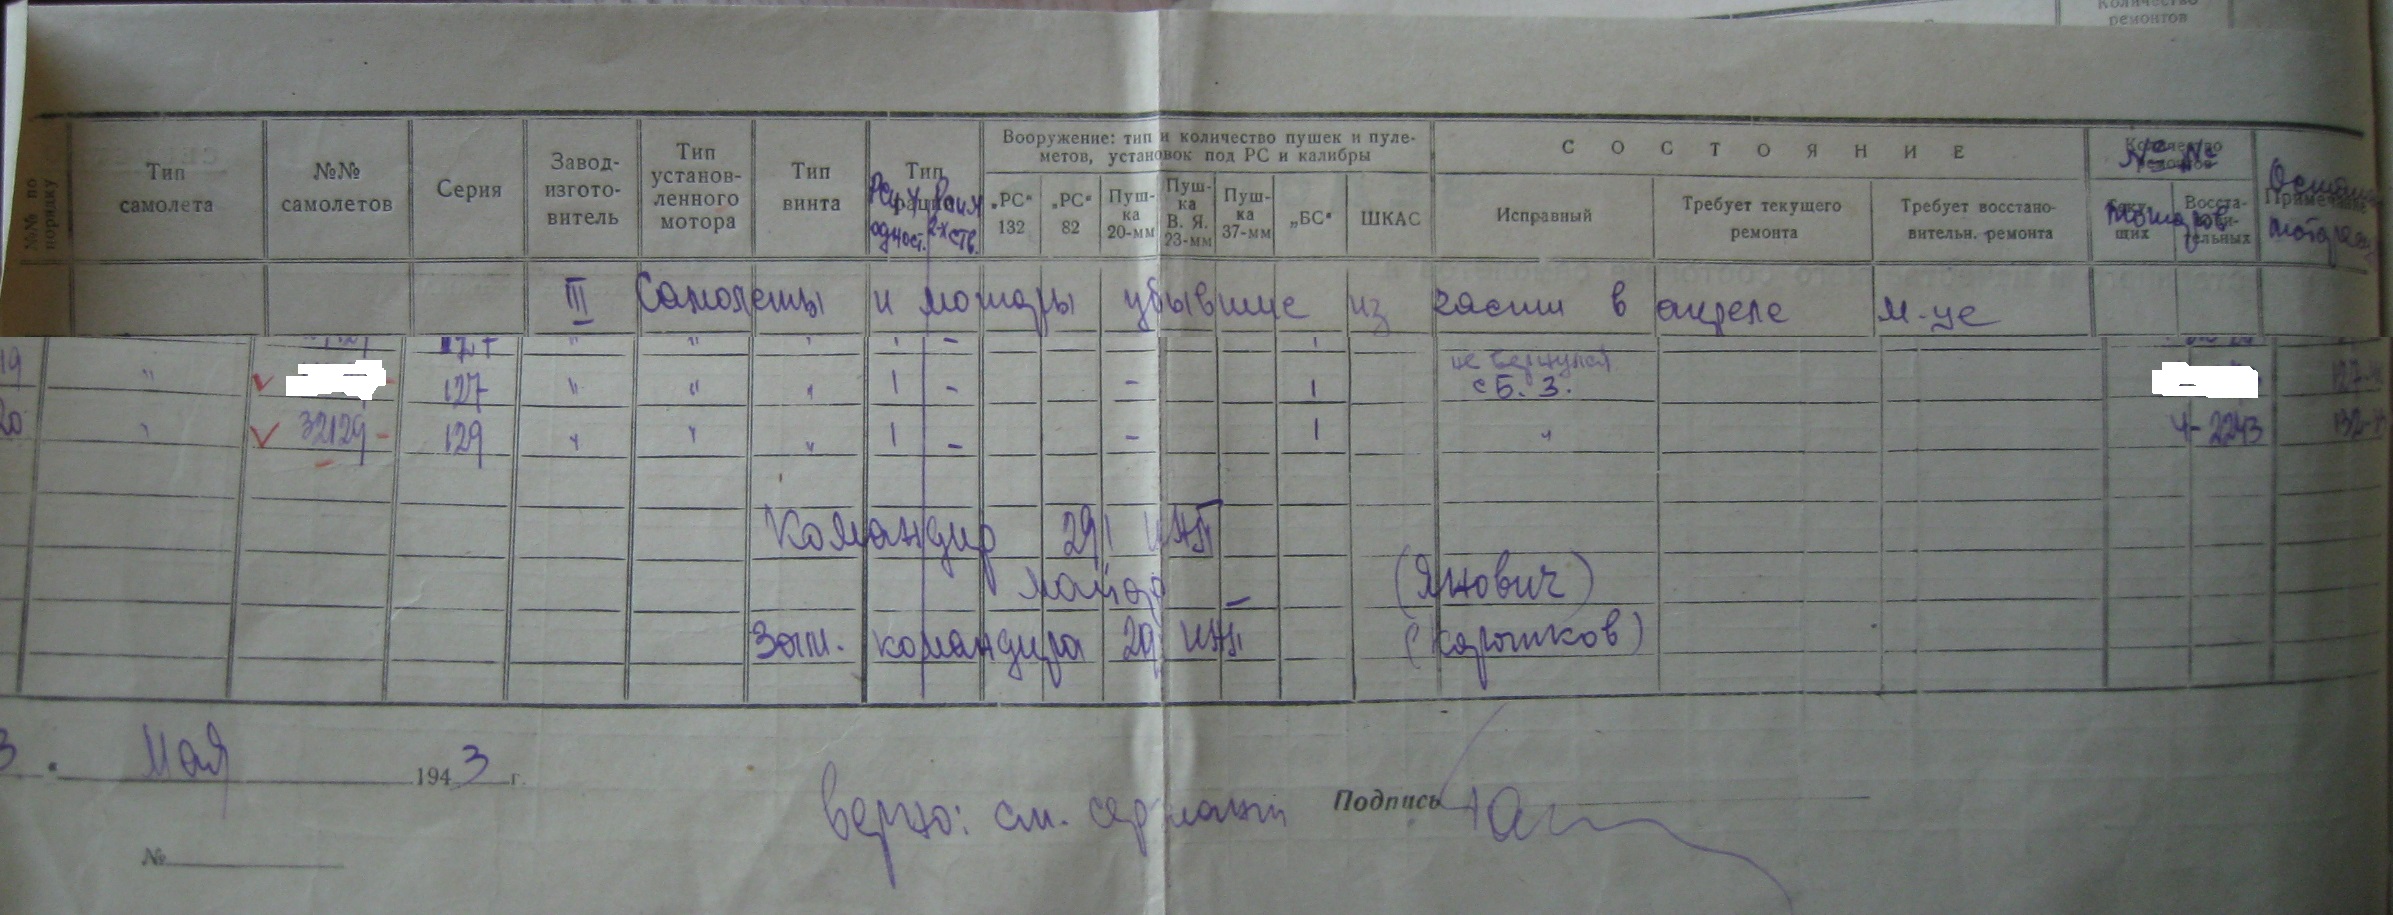 Количество
ремонтов
№№ по порядку
Тип самолета
№№ самолетов
Серия
Завод-изготовитель
Тип установленного мотора
Тип винта
Тип рации
РСИ-4 одност.
2-х ств.
Вооружение: тип и количество пушек и пулеметов, установок под РС и калибры
„РС“ 132
„РС“ 82
Пушка 20-мм
Пушка В. Я. 23-мм
Пушка 37-мм
„БС“
ШКАС
СОСТОЯНИЕ
Исправный
Требует текущего ремонта
Требует восстановительн. ремонта
Количество ремонтов
№ №
моторов
Текущих
Восстановительных
Примечание
III Самолеты и моторы убывшие из части в апреле м-це
19 " 127 " " " 1 - - 1 не вернулся с Б. З.
20 " 32129 129 " " " 1 - - 1 " 4-2243
Командир 291 ИАП
майор - (Янович)
Зам. командира 291 ИАП (Коротков)
3 " Мая 1943 г.
верно: см. сержант
Подпись
№